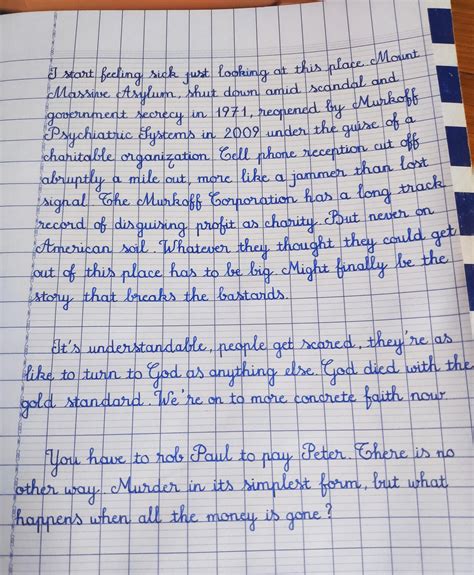 I start feeling sick just looking at this place Mount
Massive Asylum, shut down amid scandal and
government secrecy in 1971, reopened by Murkoff
Psychiatric Systems in 2009 under the guise of a
charitable organization. Cell phone reception cut off
abruptly a mile out, more like a jammer than lost
signal. The Murkoff Corporation has a long track
record of disguising profit as charity. But never on
American soil. Whatever they thought they could get
out of this place has to be big. Might finally be the
story that breaks the bastards.
It's understandable, people get scared, they're as
like to turn to God as anything else. God died with the
gold standard. We're on to more concrete faith now
You have to rob Paul to pay Peter. There is no
other way. Murder in its simplest form, but what
happens when all the money is gone?